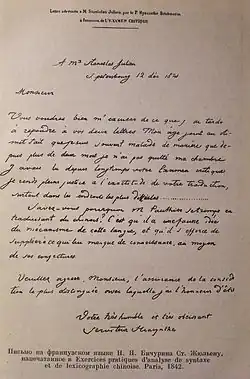 Lettre adressée à M. Stanislas Julien par le P. Hyacinthe Bitchourin
à l'occasion de L'EXAMEN CRITIQUE
A Mr. Stanislas Julien
S. petersbourg 12 déc 1841
Monsieur
Vous voudrez bien m'excuser de ce que j'ai tardé
à répondre à vos deux lettres. Mon âge joint au
fait que je suis souvent malade de manière que de-
puis plus de deux mois je n'ai pas quitté ma chambre
J'avais lu depuis longtemps votre Examen critique
Je rends pleine justice à l'exactitude de votre traduction,
surtout dans les endroits les plus difficiles
Savez-vous pourquoi M. Pauthier se trompe en
traduisant du chinois? C'est qu'il a une fausse idée
du mécanisme de cette langue, et qu'il s'efforce de
suppléer à ce qui lui manque de connaissance, au moyen
de ses conjectures
Veuillez agréer Monsieur, l'assurance de la considé
ration la plus distinguée avec laquelle j'ai l'honneur d'être
Votre très humble et très obéissant
Serviteur Hyacinthe
Письмо на французском языке Н. Я. Бичурина Ст. Жюльену,
напечатанное в Exercices pratiques d'analyse de syntaxe
et de lexicographie chinoise. Paris, 1842.